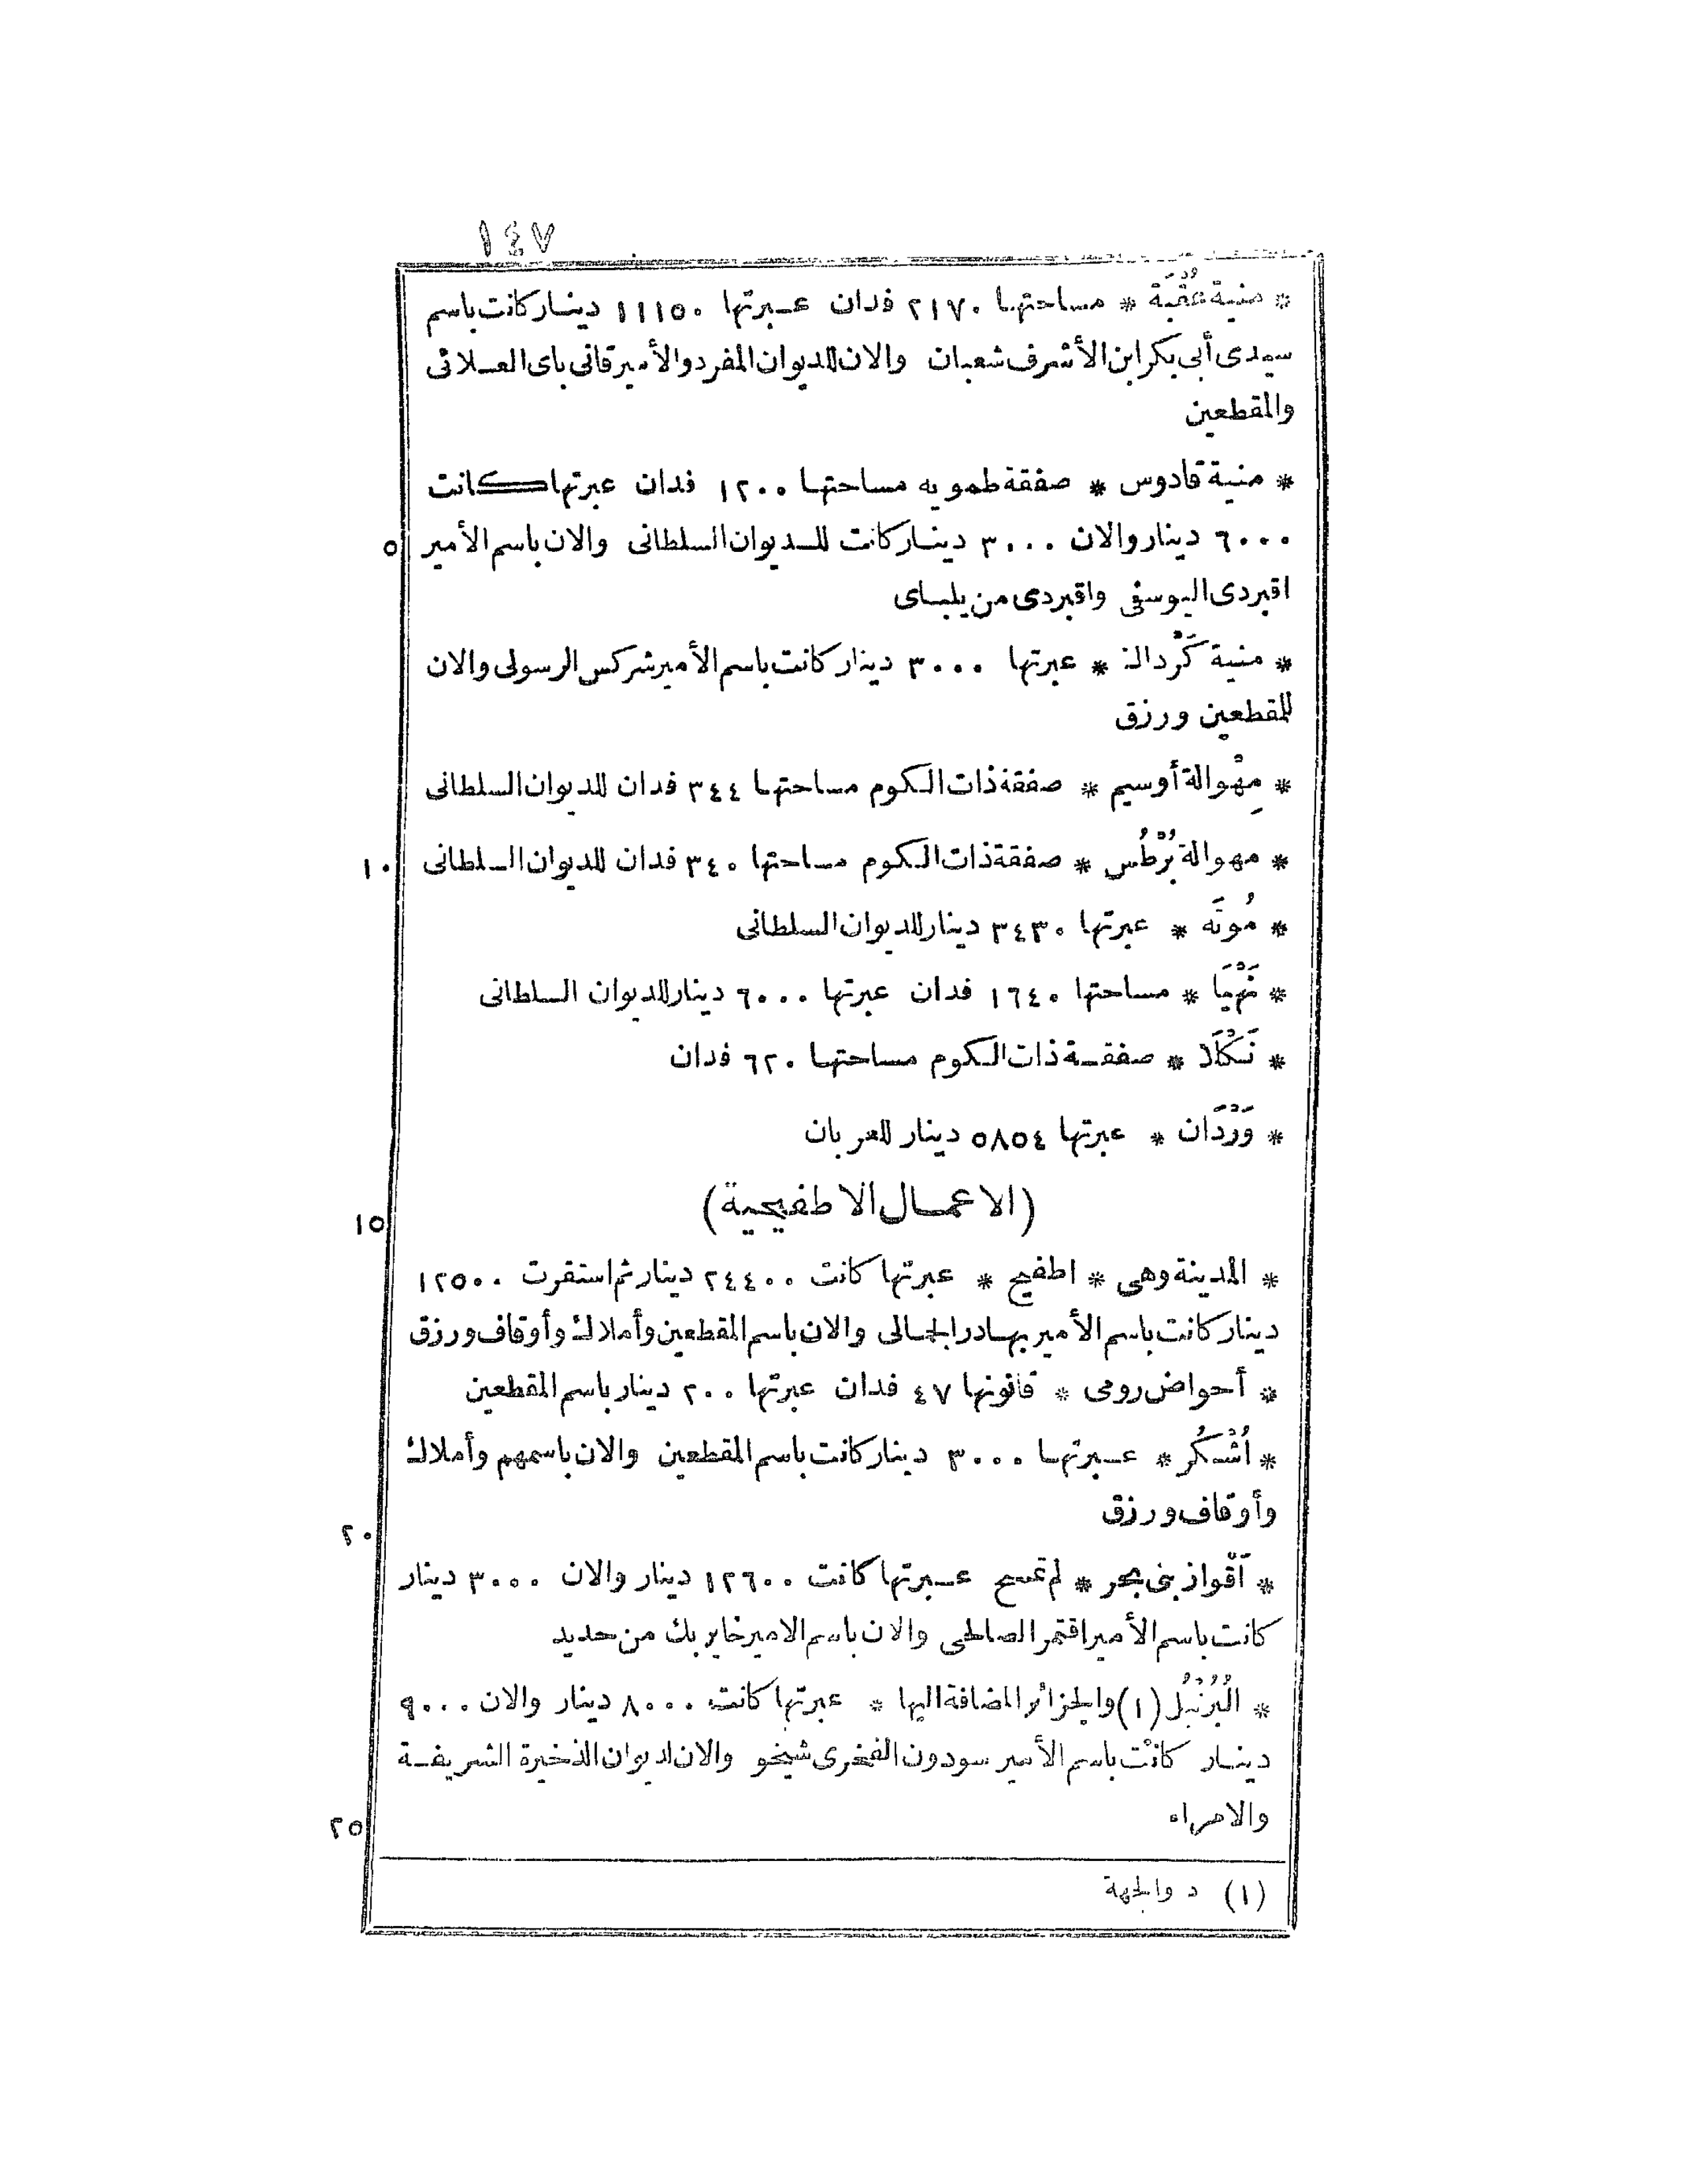 ١٤٧
* منية عُقْبَة * مساحتها ٢١٧٠ فدان عـبرتها ١١١٥٠ دينار كانت باسم
سيدى أبى بكر ابن الأشرف شعبان والان للديوان المفرد والأمير قانى باى العـلائى
والمقطعين
* منية قادوس * صفقة طمويه مساحتها ١٢٠٠ فدان عبرتها كانت
٦٠٠٠ دينار والان ٣٠٠٠ دينار كانت للـديوان السلطانى والان باسم الأمير ٥
اقبردى اليوسفى واقبردى من يلباى
* منية كَرْدالة * عبرتها ٣٠٠٠ دينار كانت باسم الأمير شركس الرسولى والان
للمقطعين ورزق
* مِهْوالة أوسيم * صفقة ذات الكوم مساحتها ٣٤٤ فدان للديوان السلطانى
* مهوالة بُرْطُس * صفقة ذات الكوم مساحتها ٣٤٠ فدان للديوان السلطانى ١٠
* مُونَه * عبرتها ٣٤٣٠ دينار للديوان السلطانى
* نَهْيَا * مساحتها ١٦٤٠ فدان عبرتها ٦٠٠٠ دينار للديوان السلطانى
* نَكْلَا * صفقـة ذات الكوم مساحتها ٦٢٠ فدان
* وَرْدَان * عبرتها ٥٨٥٤ دينار للعربان
(الاعمـال الاطفيحية) ١٥
* المدينة وهى * اطفيح * عبرتها كانت ٢٤٤٠٠ دينار ثم استقرت ١٢٥٠٠
دينار كانت باسم الأمير بهادر الجمالى والان باسم المقطعين وأملاك وأوقاف ورزق
* أحواض رومى * قانونها ٤٧ فدان عبرتها ٢٠٠ دينار باسم المقطعين
* أُشْكُر * عـبرتها ٣٠٠٠ دينار كانت باسم المقطعين والان باسمهم وأملاك
وأوقاف ورزق ٢٠
* آقْواز بنى بحر * لم تمسح عـبرتها كانت ١٢٦٠٠ دينار والان ٣٠٠٠ دينار
كانت باسم الأمير اقتمر الصالحى والان باسم الامير خاير بك من حديد
* البُرُنْبُل (١) والجزائر المضافة اليها * عبرتها كانت ٨٠٠٠ دينار والان ٩٠٠٠
دينـار كانت باسم الأمير سودون الفخرى شيخو والان لديوان الذخيرة الشريفـة
والامراء ٢٥
(١) د والجهة